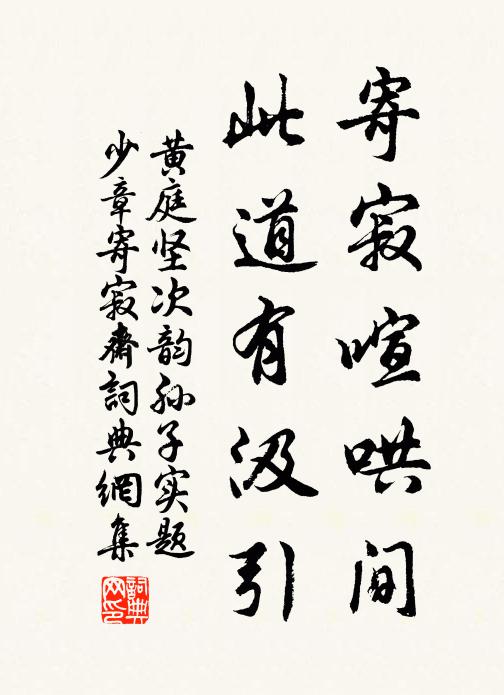 寄寂喧哄间
此道有汲引
黄庭坚次韵孙子实题
少章寄寂斋詞典網集
詞典
网印